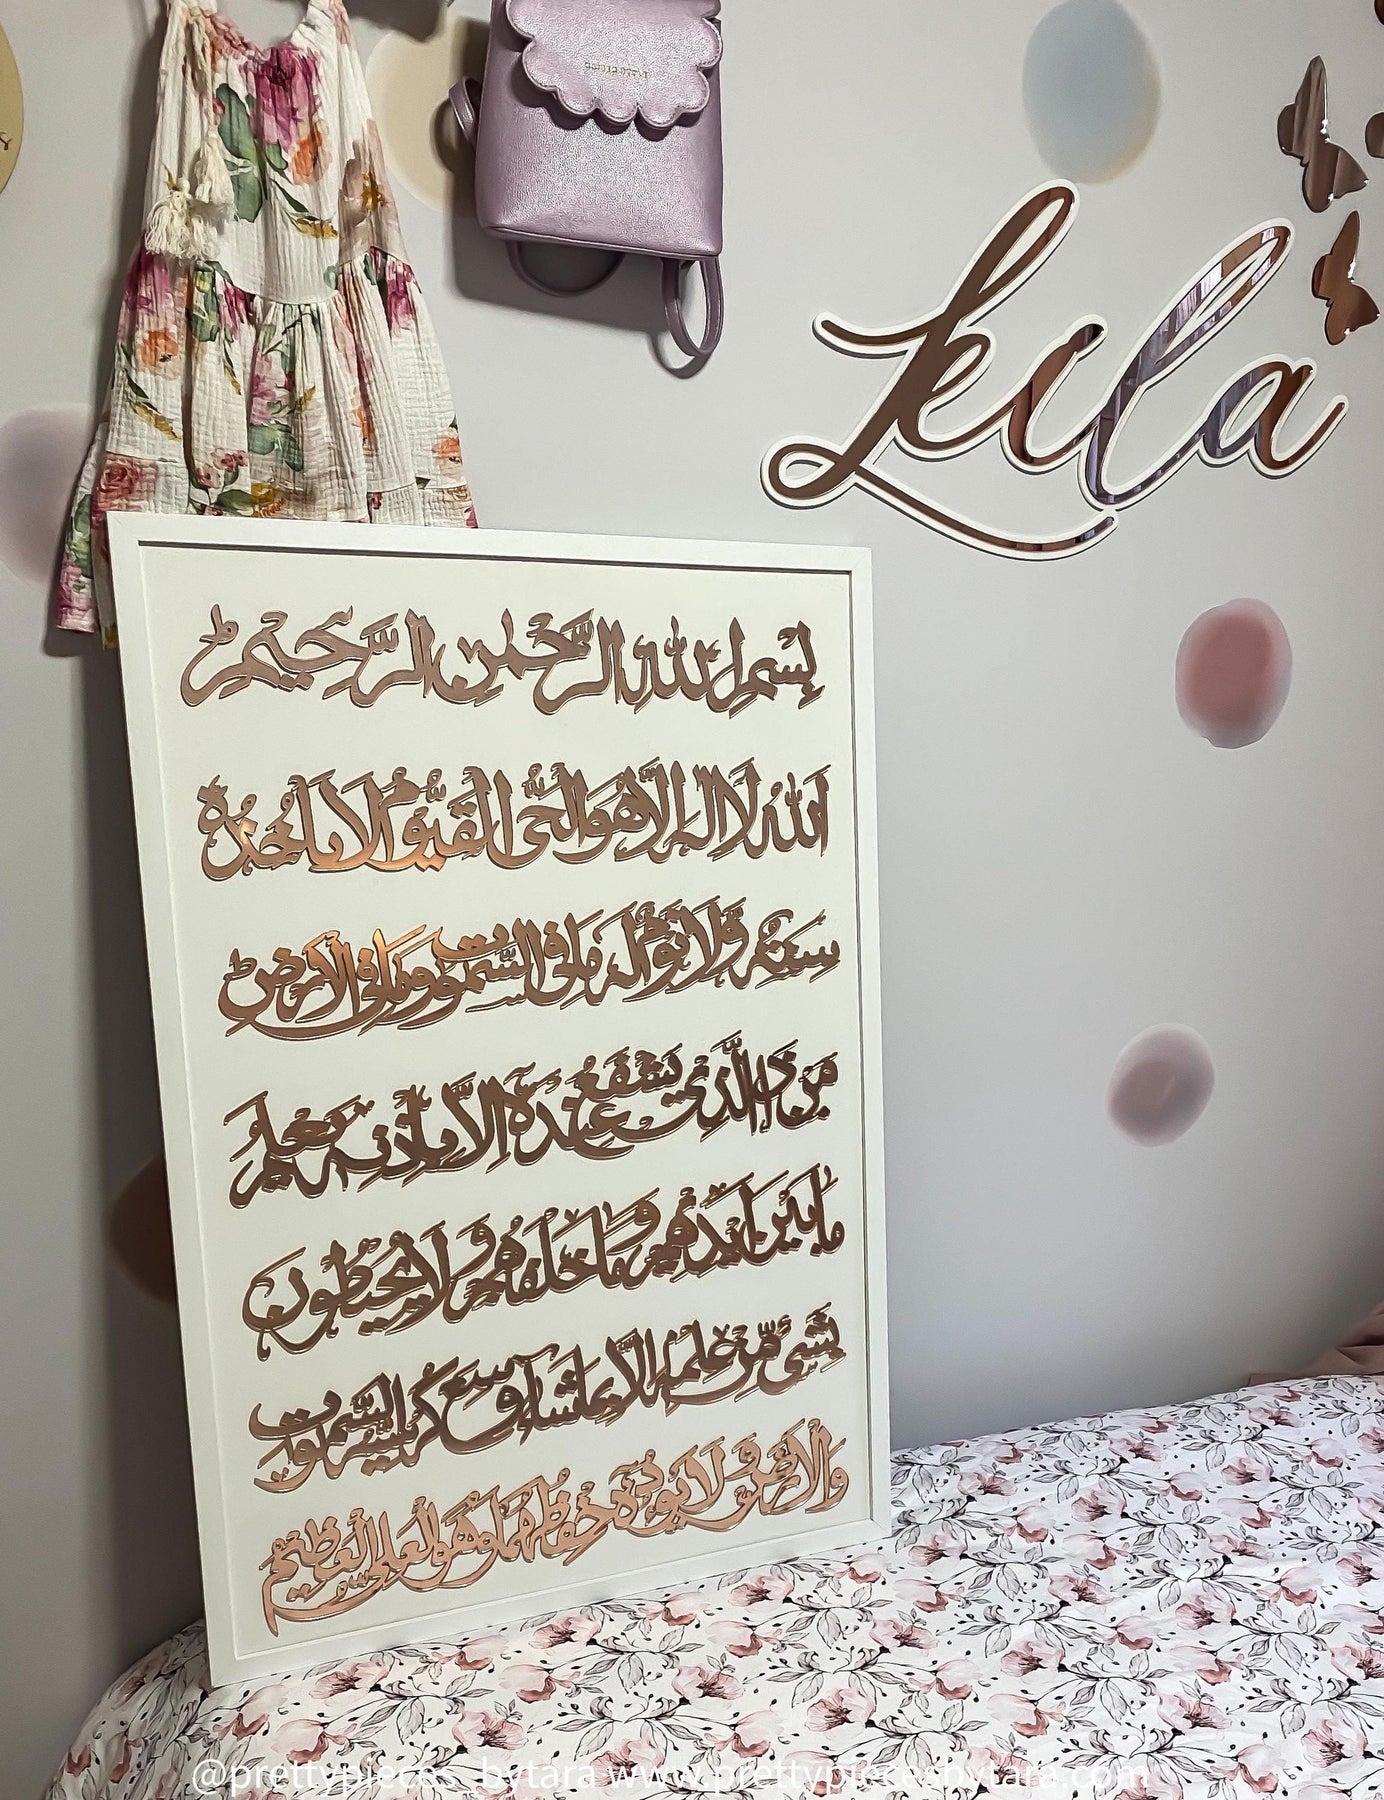 Leila
بِسْمِ اللهِ الرَّحْمٰنِ الرَّحِيْمِ
اَللهُ لَا اِلٰهَ اِلَّا هُوَ الْحَيُّ الْقَيُّوْمُ لَا تَأْخُذُهٗ
سِنَةٌ وَّلَا نَوْمٌ لَهٗ مَا فِي السَّمٰوٰتِ وَمَا فِي الْاَرْضِ
مَنْ ذَا الَّذِيْ يَشْفَعُ عِنْدَهٗ اِلَّا بِاِذْنِهٖ يَعْلَمُ
مَا بَيْنَ اَيْدِيْهِمْ وَمَا خَلْفَهُمْ وَلَا يُحِيْطُوْنَ
بِشَيْءٍ مِّنْ عِلْمِهٖ اِلَّا بِمَا شَاءَ وَسِعَ كُرْسِيُّهُ السَّمٰوٰتِ
وَالْاَرْضَ وَلَا يَئُوْدُهٗ حِفْظُهُمَا وَهُوَ الْعَلِيُّ الْعَظِيْمُ
@prettypieces_bytara www.prettypiecesbytara.com